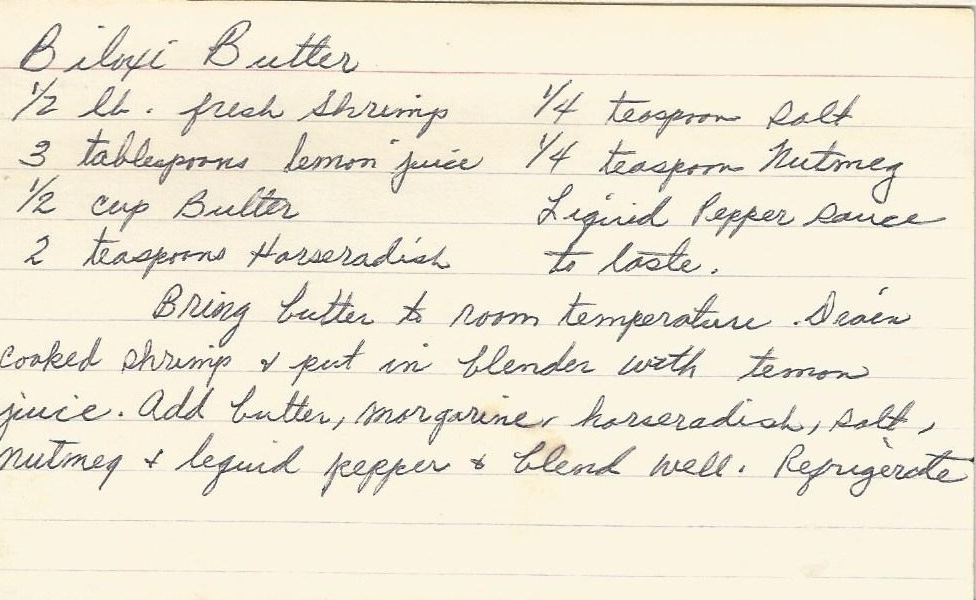 Biloxi Butter
1/2 lb. fresh Shrimp 1/4 teaspoon Salt
3 tablespoons lemon juice 1/4 teaspoon Nutmeg
1/2 cup Butter Liquid Pepper sauce
2 teaspoons Horseradish to taste.
Bring butter to room temperature. Drain
cooked shrimp & put in blender with lemon
juice. Add butter, margarine, horseradish, salt,
nutmeg & liquid pepper & blend well. Refrigerate